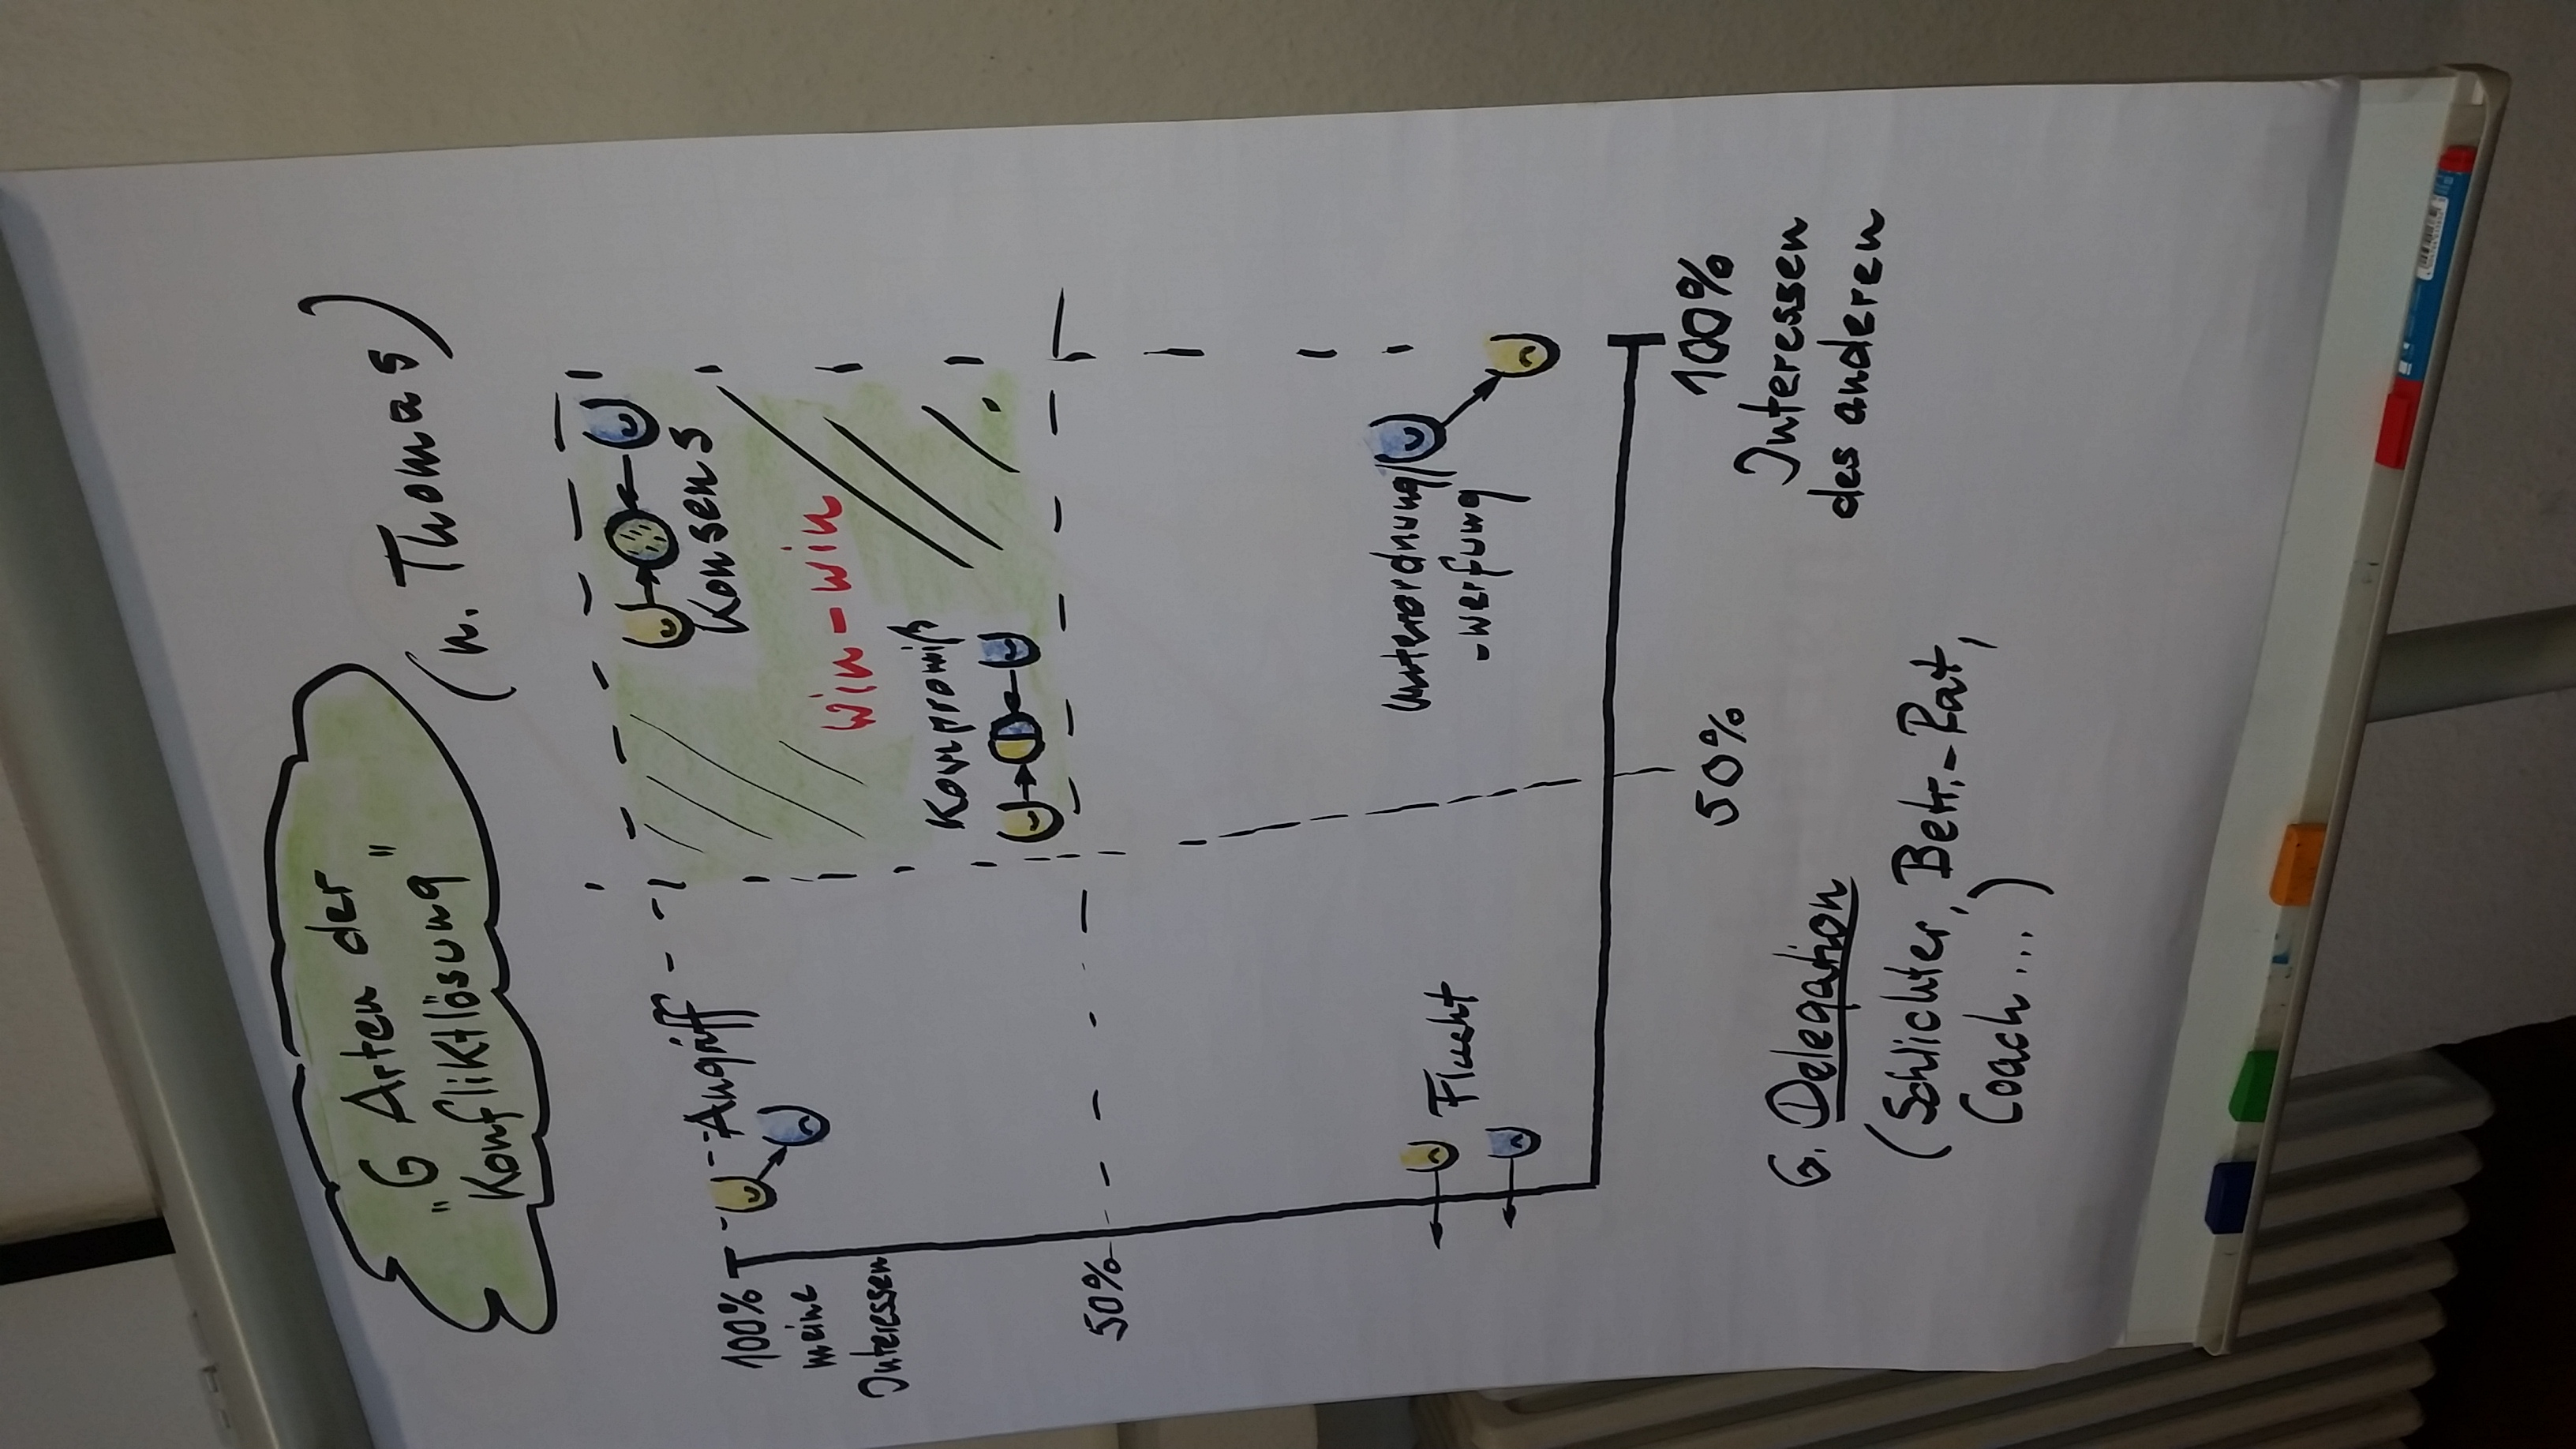 "6 Arten der
Konfliktlösung"
(n. Thomas)
100%
meine
Interessen
Angriff
Konsens
win-win
Kompromiß
50%
Flucht
Unterordnung/
-werfung
50%
100%
Interessen
des anderen
6. Delegation
(Schlichter, Betr.-Rat,
Coach...)